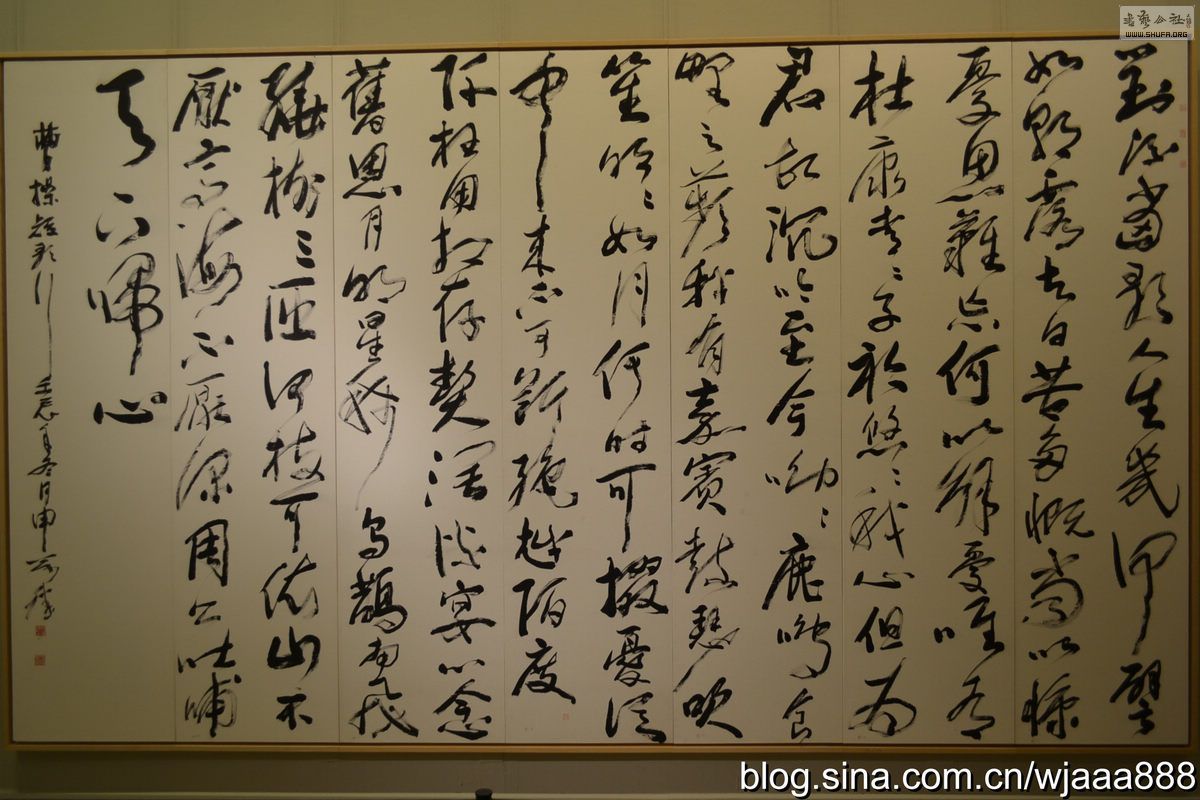 對酒當歌人生幾何譬
如朝露去日苦多慨當以慷
憂思難忘何以解憂唯有
杜康青々子衿悠々我心但為
君故沉吟至今呦々鹿鳴食
野之蘋我有嘉賓鼓瑟吹
笙明々如月何時可掇憂從
中來不可斷絕越陌度
阡枉用相存契闊談宴心念
舊恩月明星稀烏鵲南飛
繞樹三匝何枝可依山不
厭高海不厭深周公吐哺
天下歸心
曹操短歌行 壬辰年冬月申
书艺公社
WWW.SHUFA.ORG
blog.sina.com.cn/wjaaa888